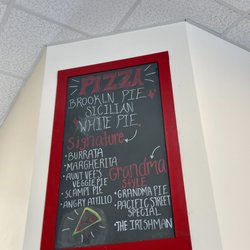 PIZZA
BROOKLN PIE
SICILIAN
WHITE PIE
Signature
• BURRATA
• MARGHERITA
• AUNT VEE'S
VEGGIE PIE
• SCAMPI PIE
• ANGRY ATILLIO
Grandma
STYLE
• GRANDMA PIE
• PACIFIC STREET
SPECIAL
• THE IRISHMAN